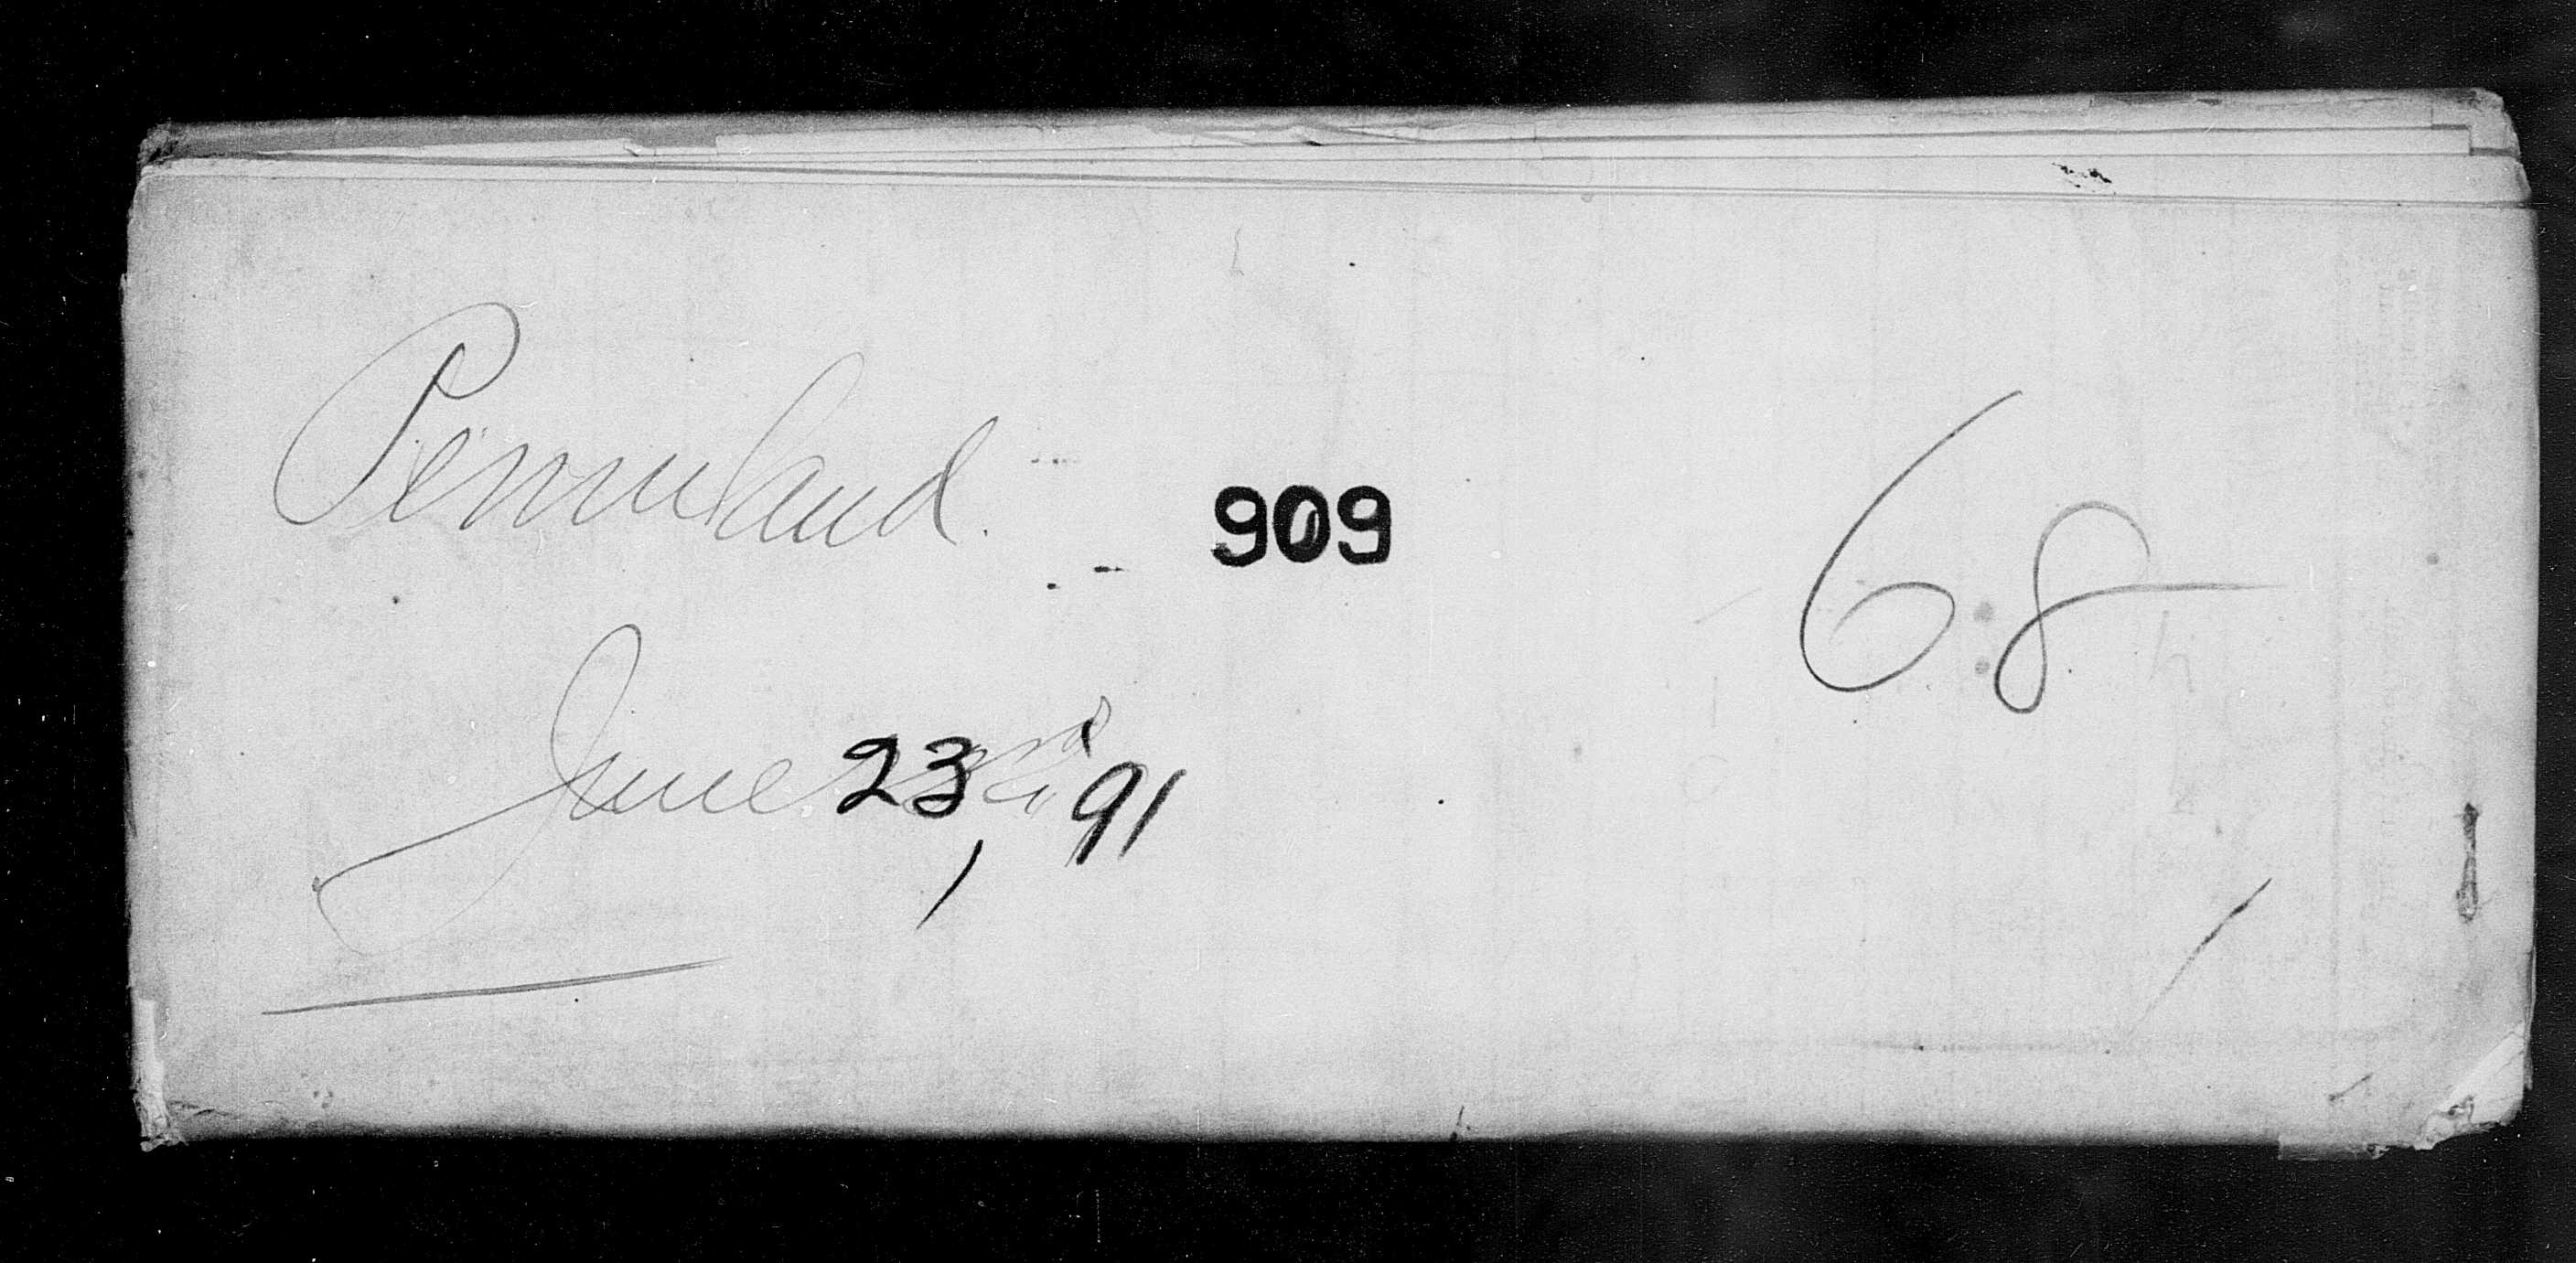 Pennland.
909
68
June 23, 91